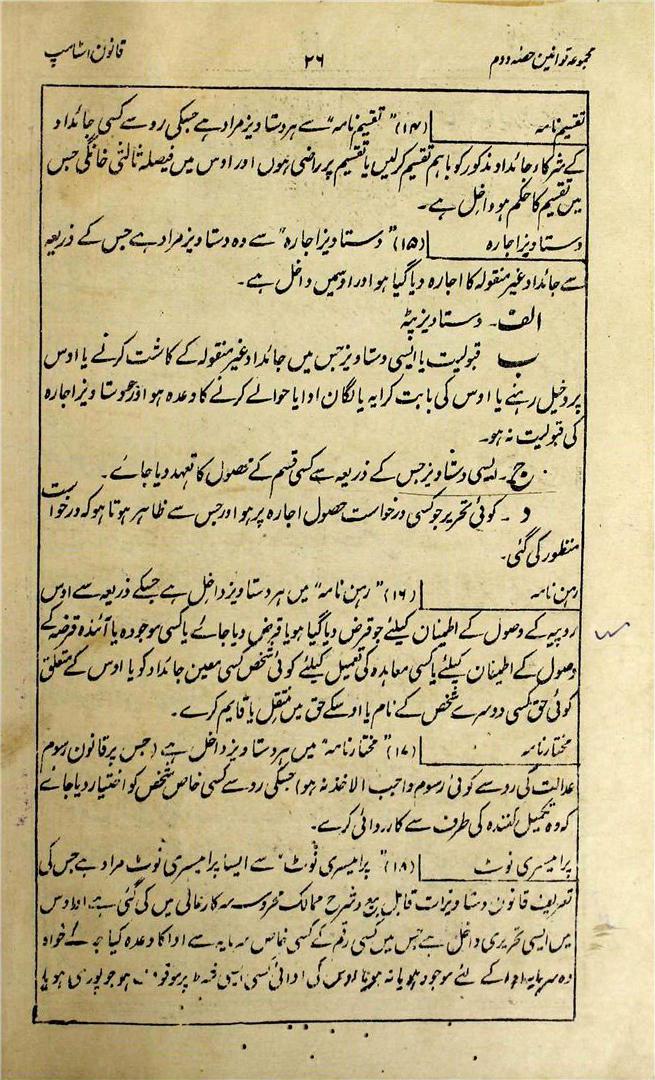 مجموعہ قوانین حصہ دوم
۲۶
قانون اسٹامپ
تقسیم نامہ
(۱۴) "تقسیم نامہ" سے ہر دستاویز مراد ہے جسکی رو سے کسی جائداد
کے شرکاء جائداد مذکور کو باہم تقسیم کرلیں یا تقسیم پر راضی ہوں اور اوس میں فیصلہ ثالثی خانگی جس
میں تقسیم کا حکم ہو داخل ہے۔
دستاویز اجارہ
(۱۵) "دستاویز اجارہ" سے وہ دستاویز مراد ہے جس کے ذریعہ
سے جائداد غیر منقولہ کا اجارہ دیا گیا ہو اور اوسمیں داخل ہے۔
الف۔ دستاویز پٹہ
ب قبولیت یا ایسی دستاویز جس میں جائداد غیر منقولہ کے کاشت کرنے یا اوس
پر دخیل رہنے یا اوس کی بابت کرایہ یا لگان ادا یا حوالے کرنے کا وعدہ ہو اور جو دستاویز اجارہ
کی قبولیت نہ ہو۔
ج۔ ایسی دستاویز جس کے ذریعہ سے کسی قسم کے محصول کا تعہد دیا جائے۔
د۔ کوئی تحریر جو کسی درخواست حصول اجارہ پر ہو اور جس سے ظاہر ہوتا ہو کہ درخواست
منظور کی گئی۔
رہن نامہ
(۱۶) "رہن نامہ" میں ہر دستاویز داخل ہے جسکے ذریعہ سے اوس
روپیہ کے وصول کے اطمینان کیلئے جو قرض دیا گیا ہو یا قرض دیا جائے یا کسی موجودہ یا آئندہ قرضہ کے
وصول کے اطمینان کیلئے یا کسی معاہدہ کی تعمیل کیلئے کوئی شخص کسی معین جائداد کو یا اوس کے متعلق
کوئی حق کسی دوسرے شخص کے نام یا اوسکے حق میں منتقل یا قایم کرے۔
مختارنامہ
(۱۷) "مختارنامہ" میں ہر دستاویز داخل ہے (جس پر قانون رسوم
عدالت کی رو سے کوئی رسوم واجب الاخذ نہ ہو) جسکی رو سے کسی خاص شخص کو اختیار دیا جائے
کہ وہ تکمیل کنندہ کی طرف سے کارروائی کرے۔
پرامیسری نوٹ
(۱۸) "پرامیسری نوٹ" سے ایسا پرامیسری نوٹ مراد ہے جس کی
تعریف قانون دستاویزات قابل بیع و شرح ممالک محروسہ سرکارعالی میں کی گئی ہے اور اوس
میں ایسی تحریر بھی داخل ہے جس میں کسی رقم کے کسی خاص سرمایہ سے ادا کا وعدہ کیا جائے خواہ
وہ سرمایہ ادا کے لئے موجود ہو یا نہ ہو یا اوس کی ادائی کسی ایسی شرط پر موقوف ہو جو پوری ہو یا